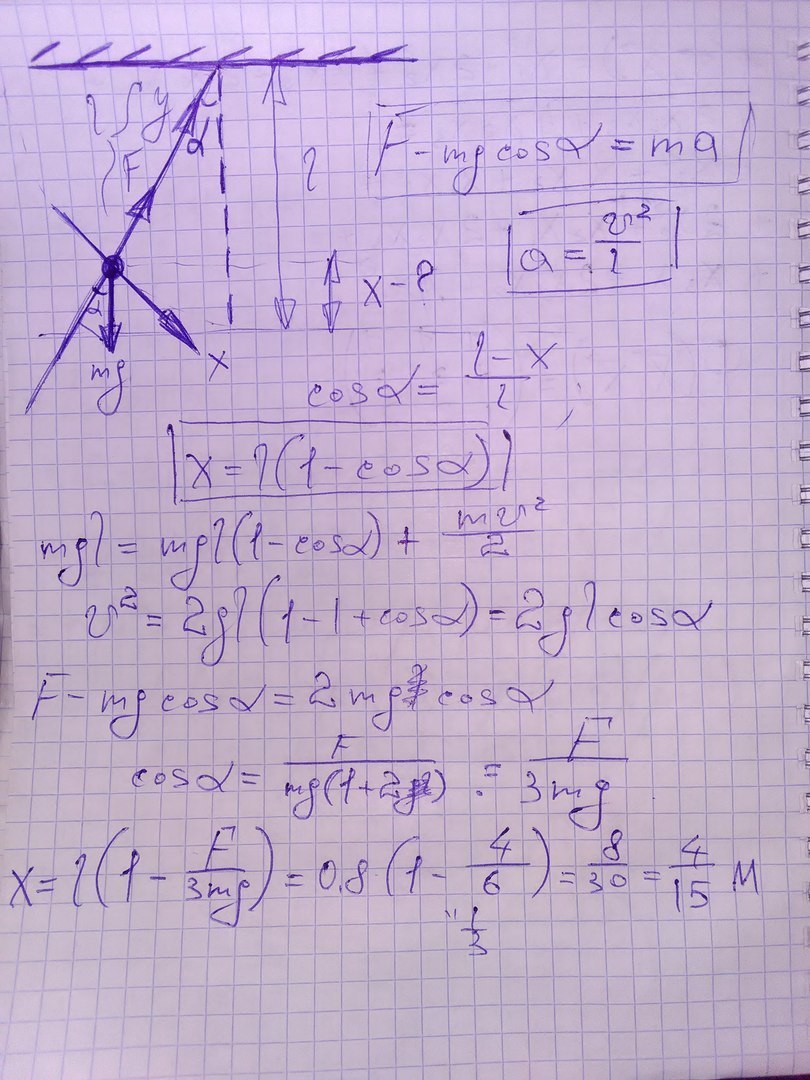 l y α
F l F - mg cosα = ma
a = v²/l
x - ?
α
mg x
cosα = (l - x)/l ;
x = l(1 - cosα)
mgl = mgl(1 - cosα) + mv²/2
v² = 2gl(1 - 1 + cosα) = 2gl cosα
F - mg cosα = 2mg cosα
cosα = F/(mg(1+2)) = F/(3mg)
x = l(1 - F/(3mg)) = 0.8(1 - 4/6) = 8/30 = 4/15 м
" 1/3